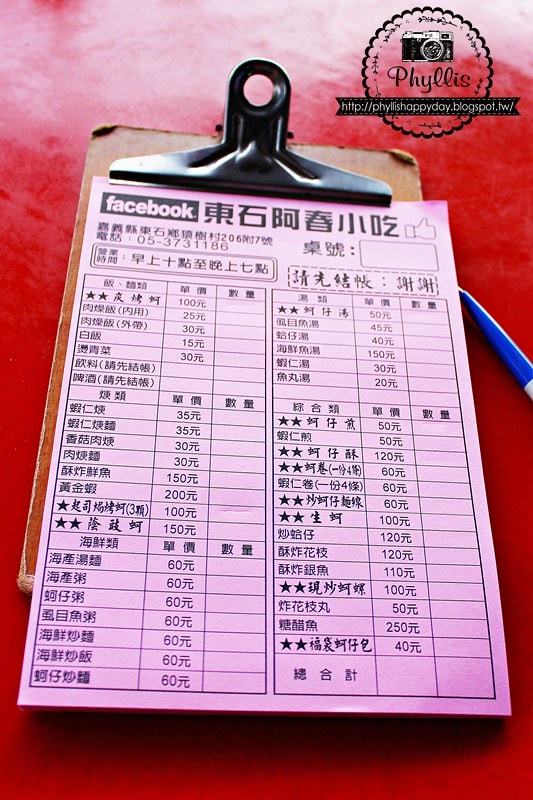 Phyllis
http://phyllishappyday.blogspot.tw/
facebook. 東石阿春小吃
嘉義縣東石鄉猿樹村206附7號
電話：05-3731186
桌號：
營業時間：早上十點至晚上七點
請先結帳：謝謝
飯、麵類 單價 數量
★★炭烤蚵 100元
肉燥飯(內用) 25元
肉燥飯(外帶) 30元
白飯 15元
燙青菜 30元
飲料(請先結帳)
啤酒(請先結帳)
焿類 單價 數量
蝦仁焿 35元
蝦仁焿麵 35元
香菇肉焿 30元
肉焿麵 30元
酥炸鮮魚 150元
黃金蝦 200元
★起司焗烤蚵(3顆) 100元
★★蔭豉蚵 150元
海鮮類 單價 數量
海產湯麵 60元
海產粥 60元
蚵仔粥 60元
虱目魚粥 60元
海鮮炒麵 60元
海鮮炒飯 60元
蚵仔炒麵 60元
湯類 單價 數量
★★蚵仔湯 50元
虱目魚湯 45元
蛤仔湯 40元
海鮮魚湯 150元
蝦仁湯 30元
魚丸湯 20元
綜合類 單價 數量
★★蚵仔煎 50元
蝦仁煎 50元
★★蚵仔酥 120元
★★蚵卷(一份4條) 60元
蝦仁卷(一份4條) 60元
★★炒蚵仔麵線 60元
★★生蚵 100元
炒蛤仔 120元
酥炸花枝 120元
酥炸銀魚 110元
★★現炒蚵螺 100元
炸花枝丸 50元
糖醋魚 250元
★★福袋蚵仔包 40元
總合計